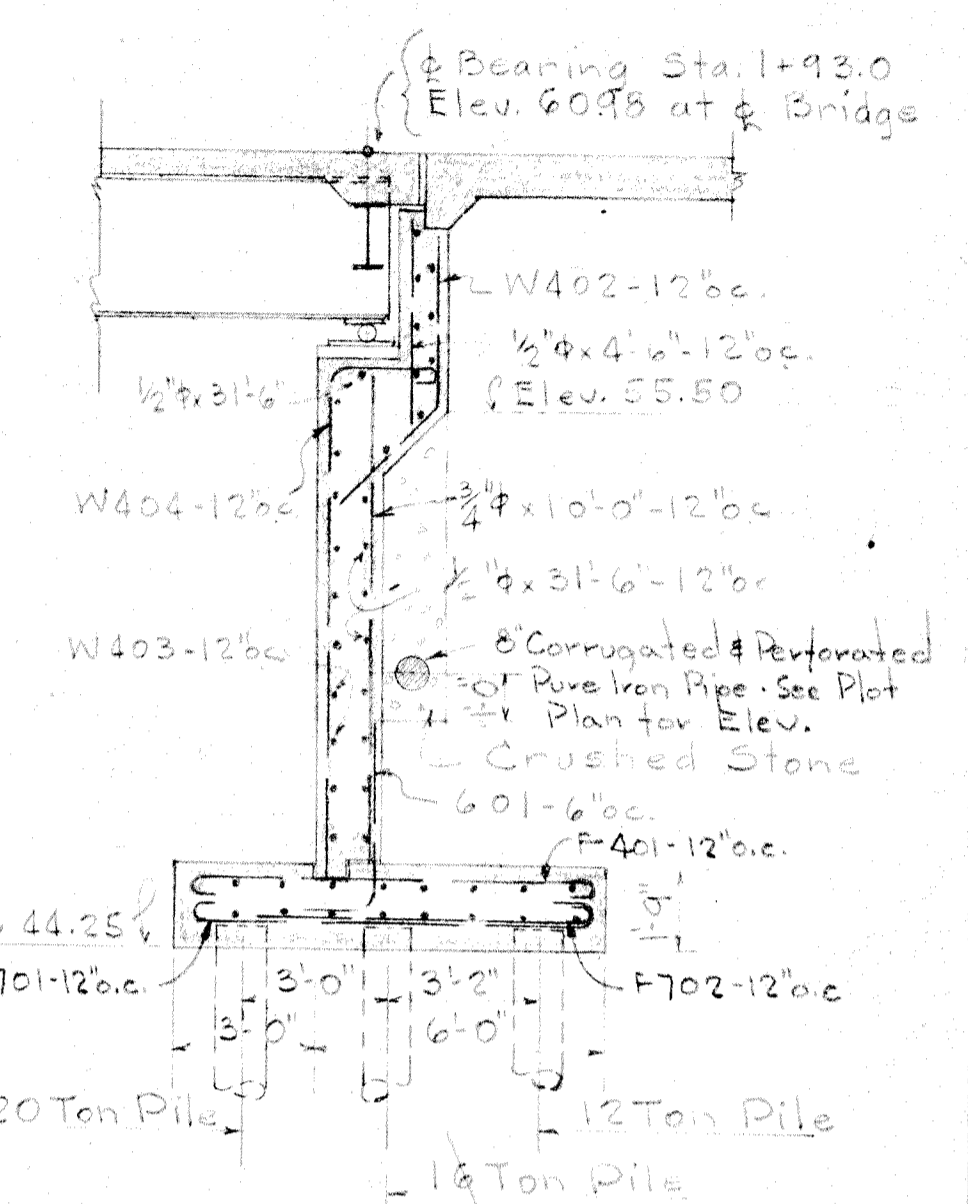 ℄ Bearing Sta. 1+93.0
Elev. 60.98 at ℄ Bridge
W402-12"oc.
½"φx4'-6"-12"oc.
Elev. 55.50
½"φx31'-6"
W404-12"oc
¾"φx10'-0"-12"oc
½"φx31'-6"-12"oc
W403-12"oc
8"Corrugated & Perforated
Pure Iron Pipe. See Plot
Plan for Elev.
Crushed Stone
601-6"oc.
F-401-12"o.c.
44.25
701-12"o.c.
F702-12"o.c
3'-0"
3'-2"
3'-0"
6'-0"
20 Ton Pile
12 Ton Pile
16 Ton Pile